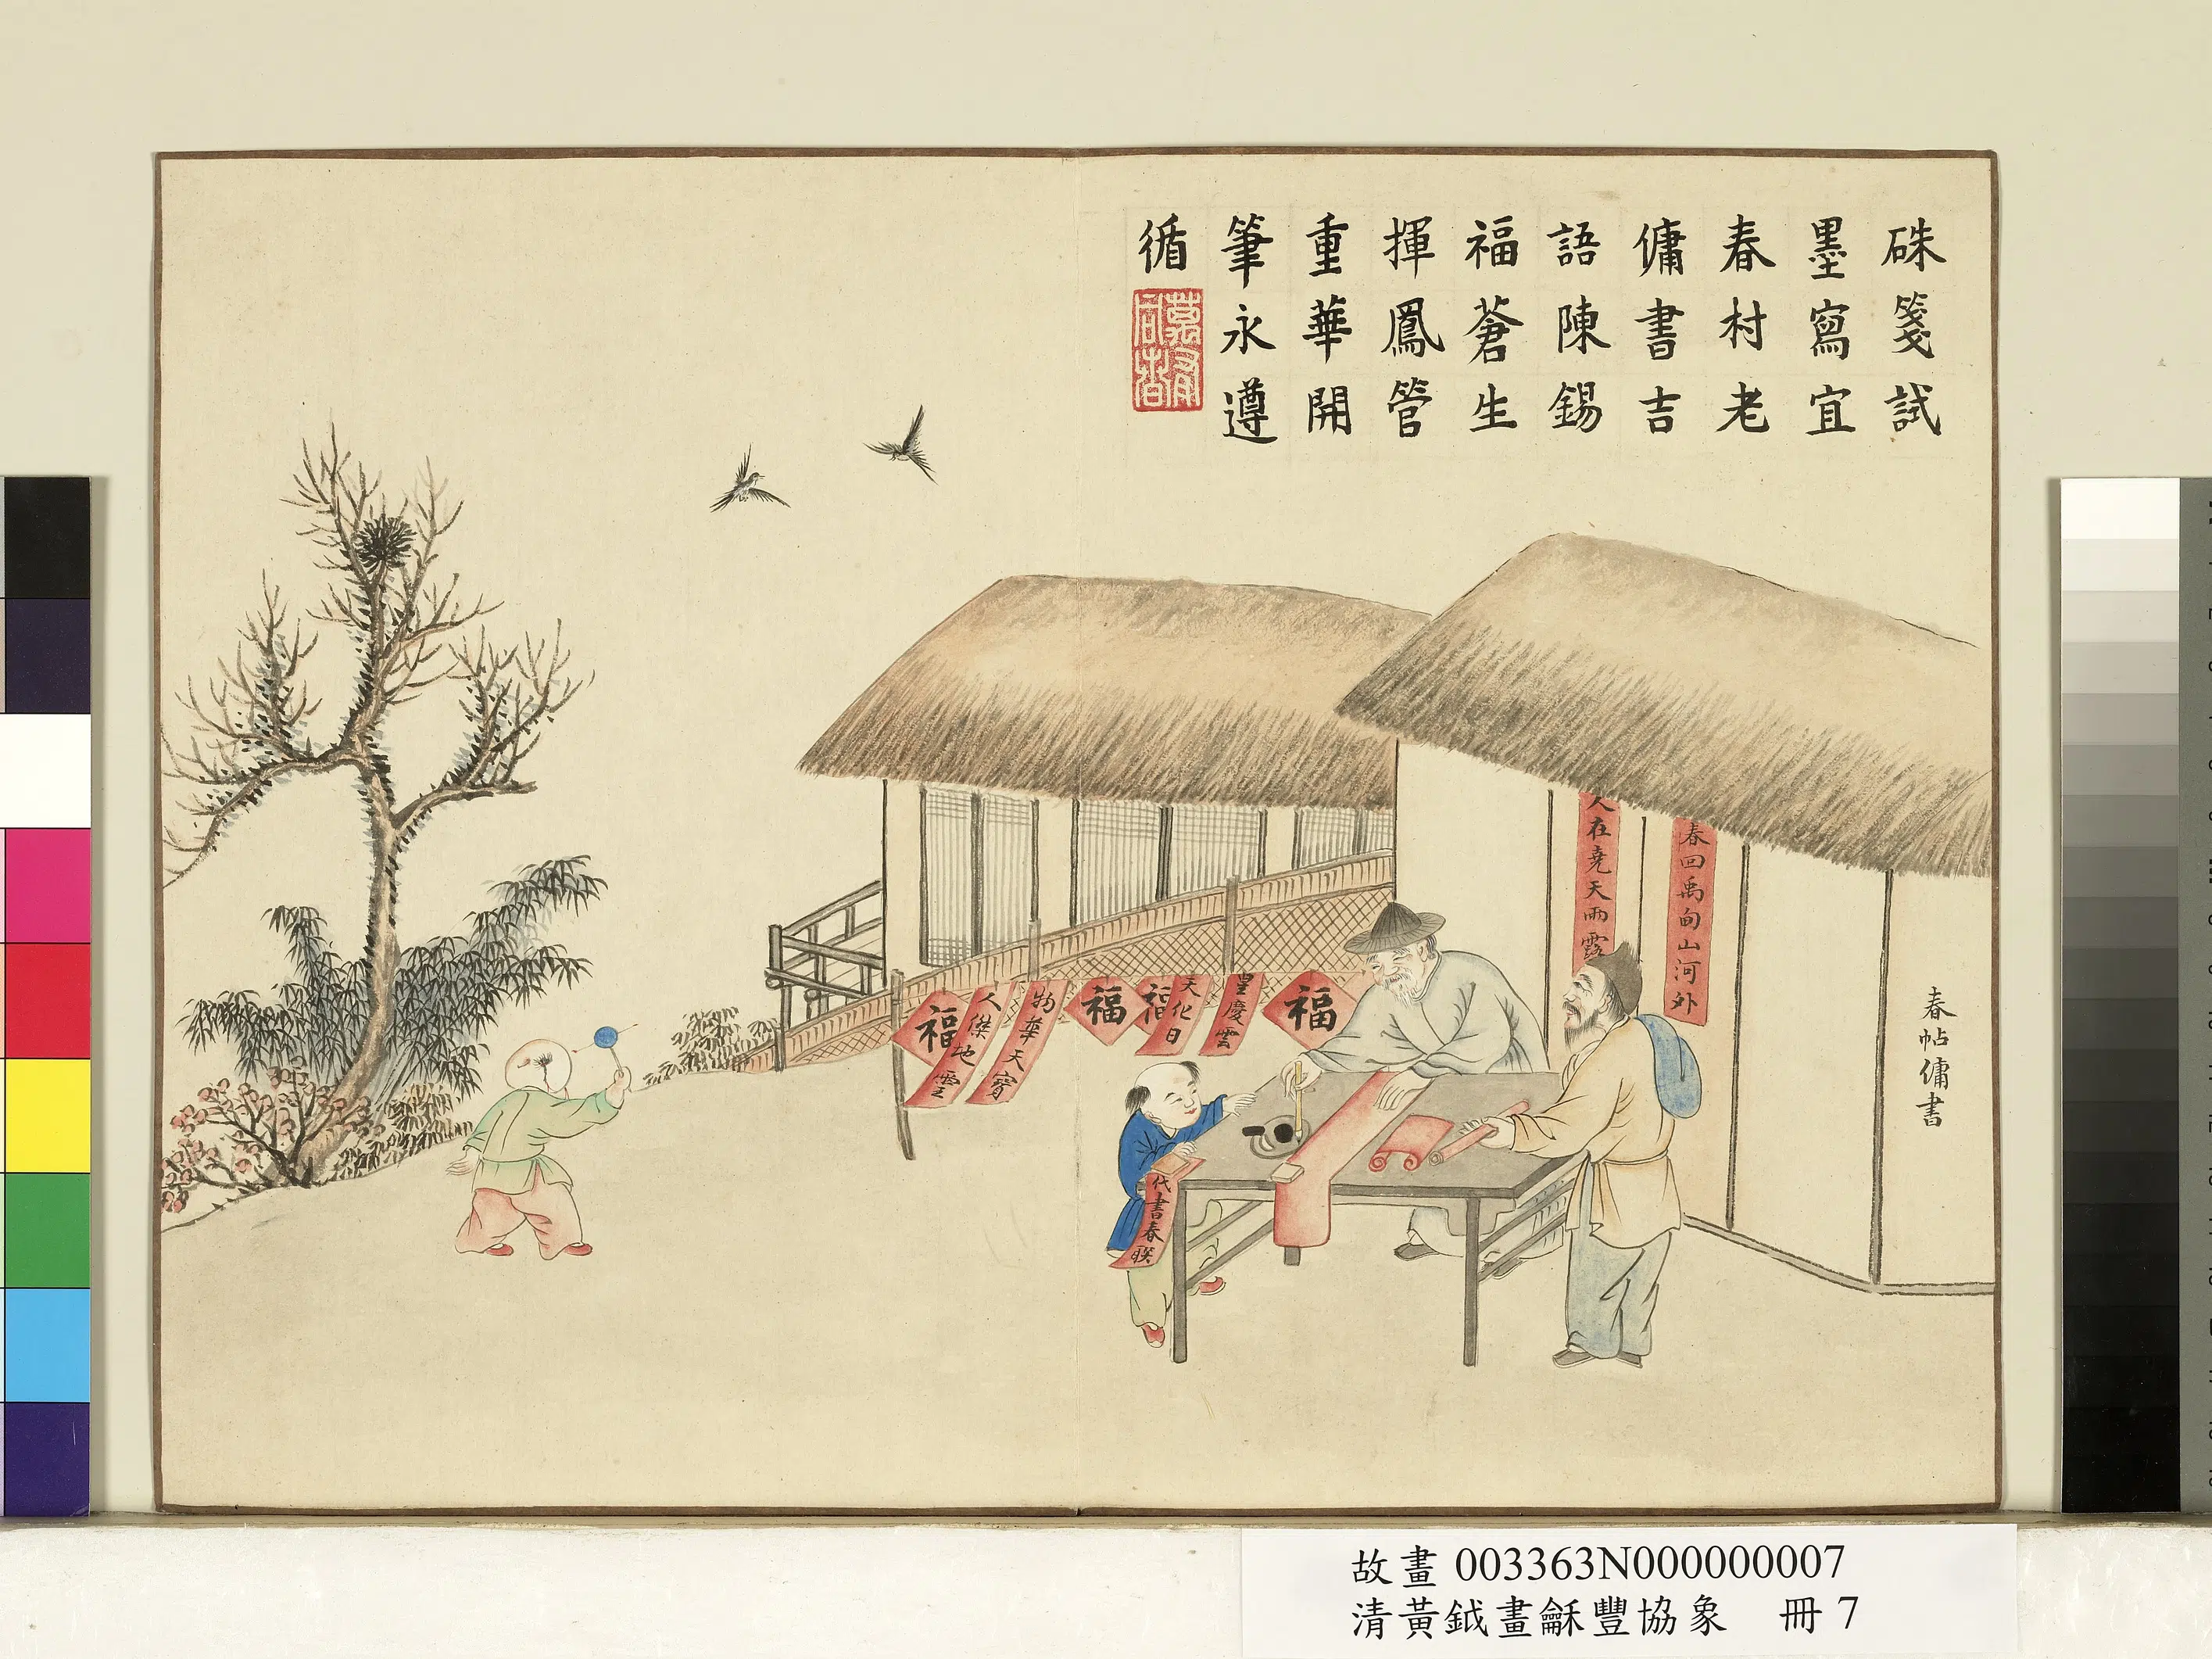 硃箋試
墨寫宜
春村老
傭書吉
語陳錫
福蒼生
揮鳳管
重華開
筆永遵
循
人在堯天雨露
春回禹甸山河外
春帖傭書
福
皇慶雲
天化日
福
福
物華天寶
人傑地靈
福
代書春联
故畫 003363N000000007
清黃鉞畫龢豐協象 冊 7